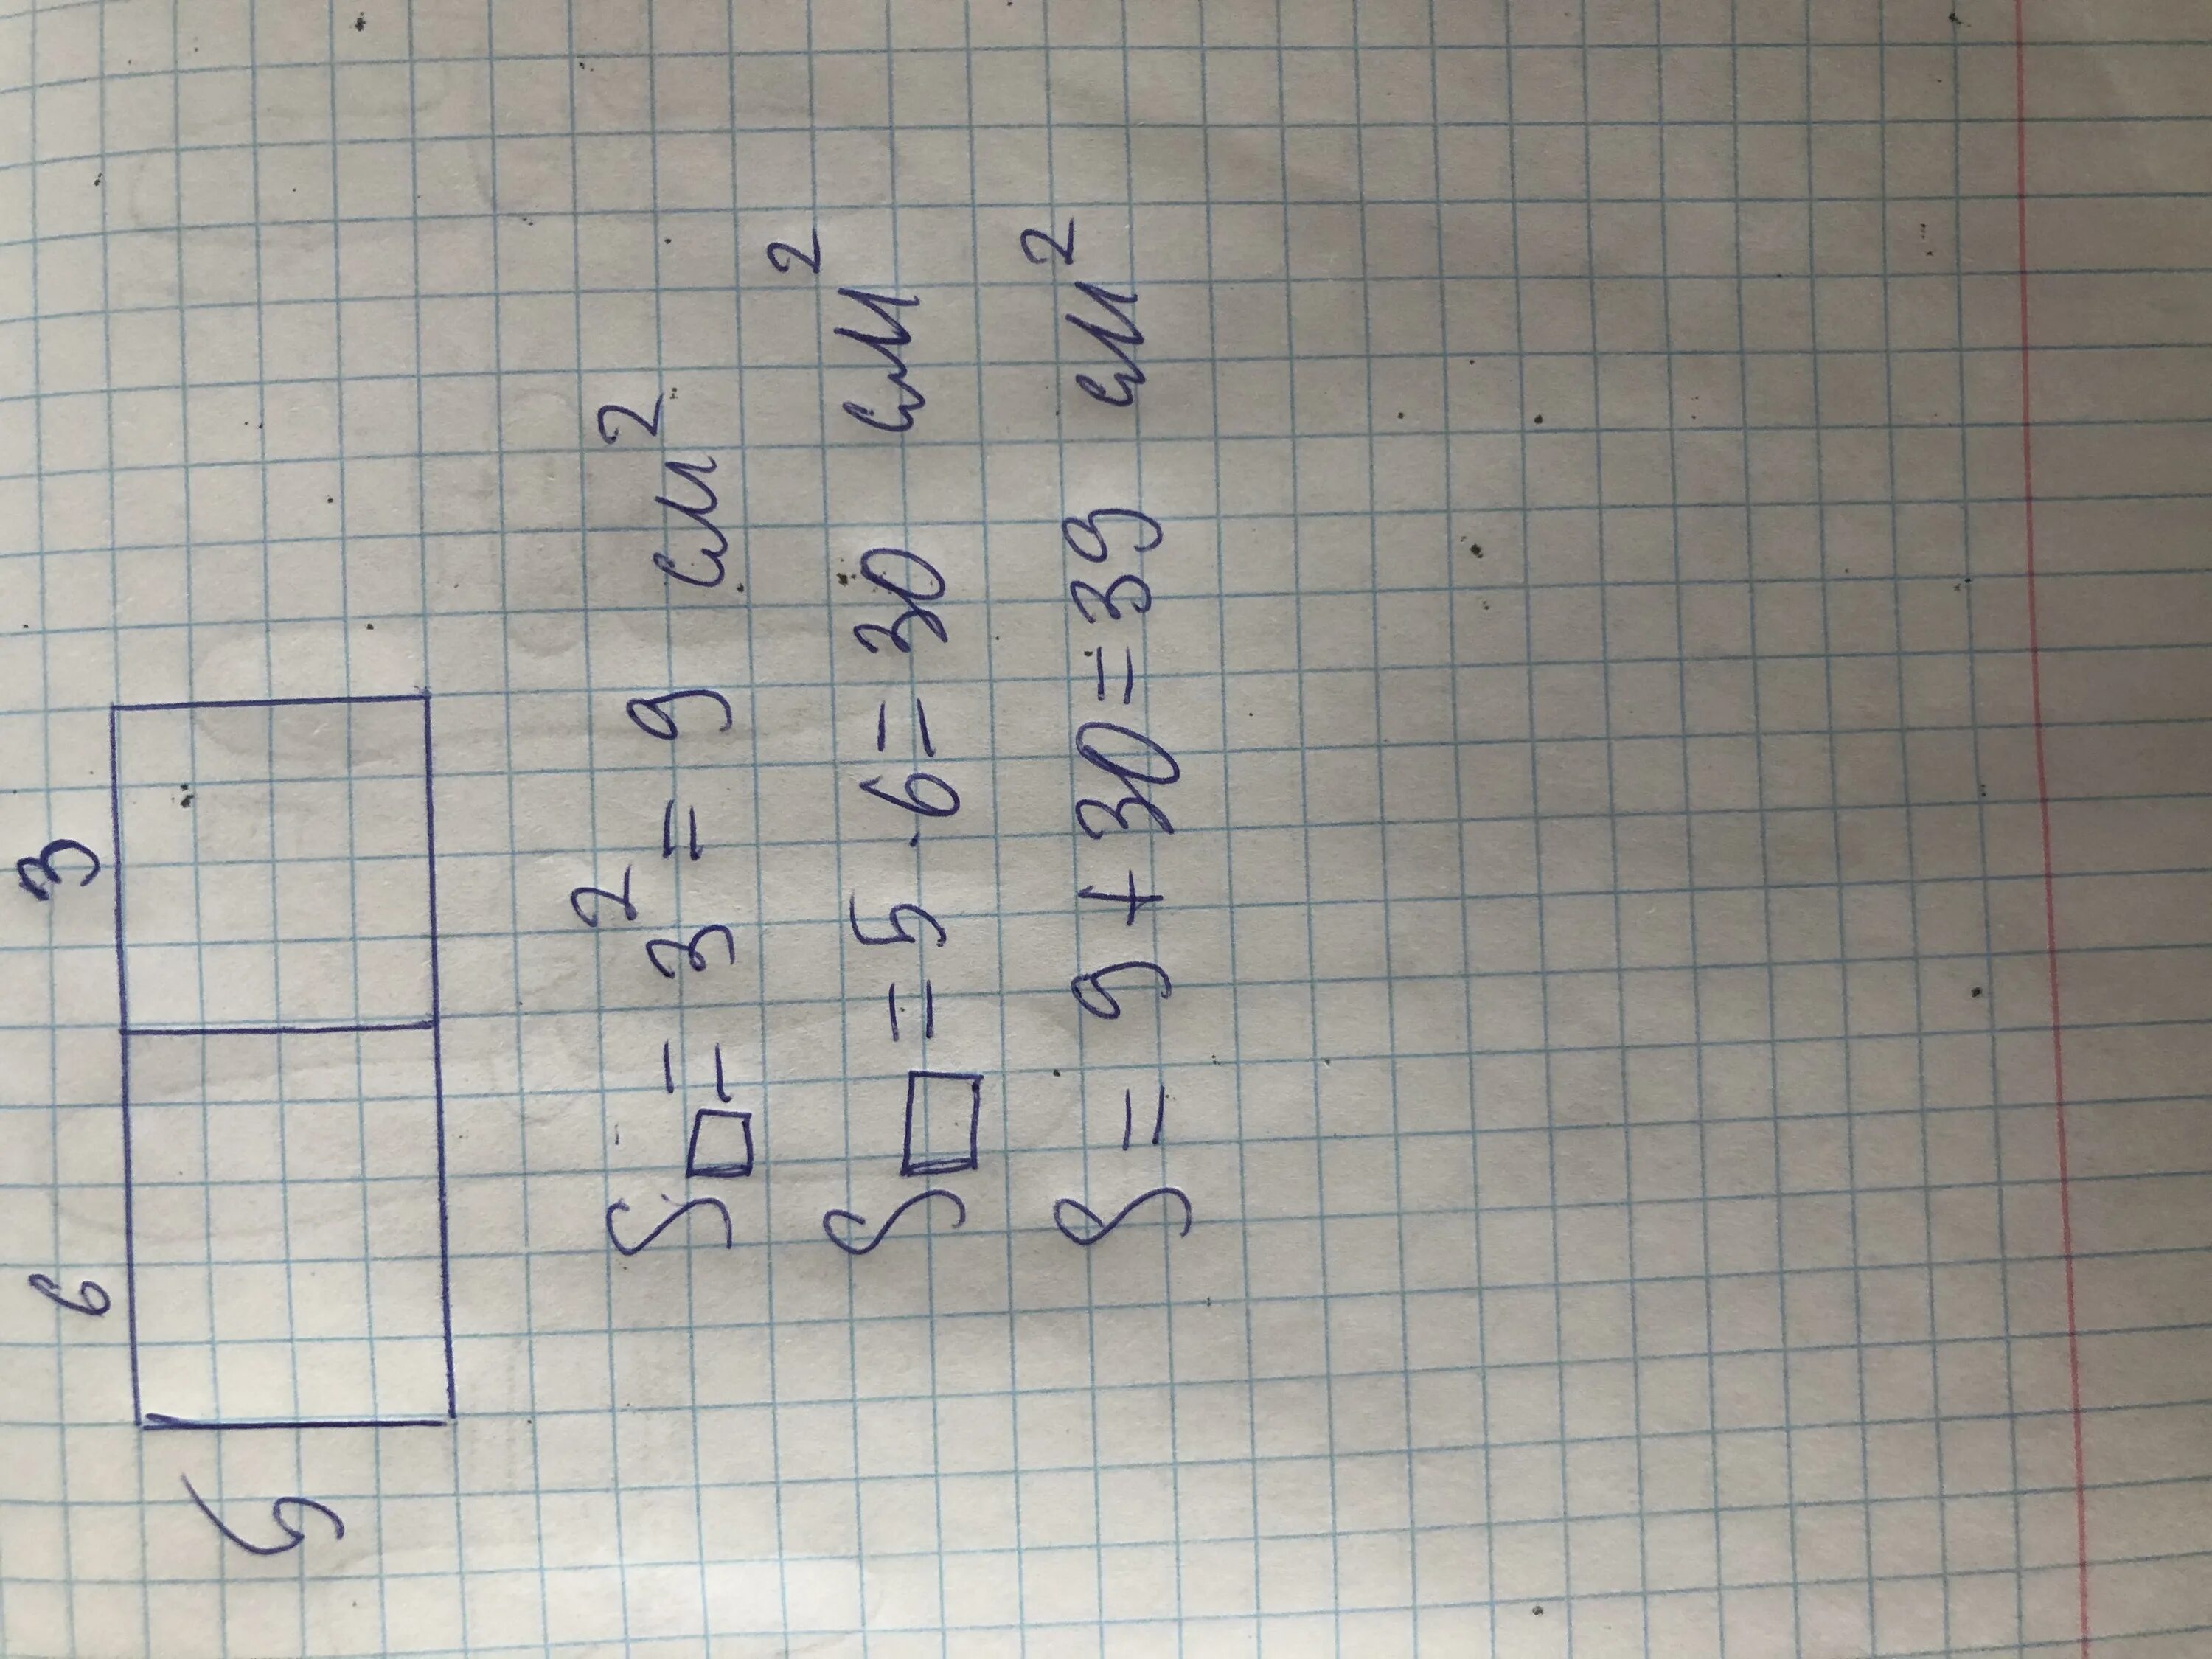 6 3
5
S□ = 3² = 9 см²
S▭ = 5 · 6 = 30 см²
S = 9 + 30 = 39 см²